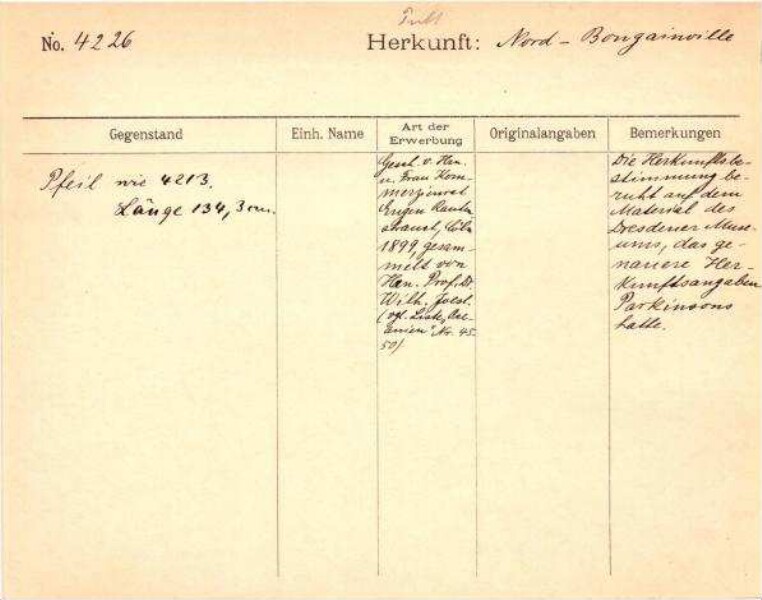 No. 4226
Herkunft: Nord-Bougainville
Gegenstand
Einh. Name
Art der Erwerbung
Originalangaben
Bemerkungen
Pfeil wie 4213.
Länge 134,3 cm.
Gesch. v. Hrn.
u. Frau Kom-
merzienrat
Eugen Rauten
strauch, Cöln
1899, gesam-
melt von
Hrn. Prof. Dr.
Wilh. Joest.
(vgl. Liste „Oze-
anien" Nr. 45
50)
Die Herkunftsbe-
stimmung be-
ruht auf dem
Material des
Dresdener Muse-
ums, das ge-
nauere Her-
kunftsangaben
Parkinsons
hatte.